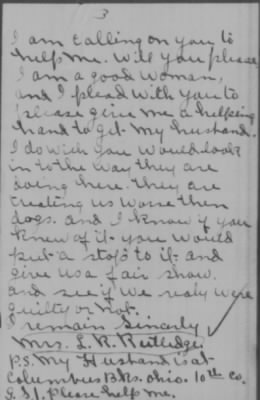 3
I am calling on you to
help me. Will you please
I am a good woman,
and I plead with you to
please give me a helping
hand to get my husband.
I do wish you would look
in to the way they are
doing here. they are
treating us worse then
dogs. and I know if you
knew of it you would
put a stop to it and
give us a fair show.
and see if we realy were
guilty or not.
I remain Sincarly
Mrs. L. R. Rutledge
P.S. My Husband is at
Columbus Bks. Ohio. 10th Co.
G.S.I. Please help me.